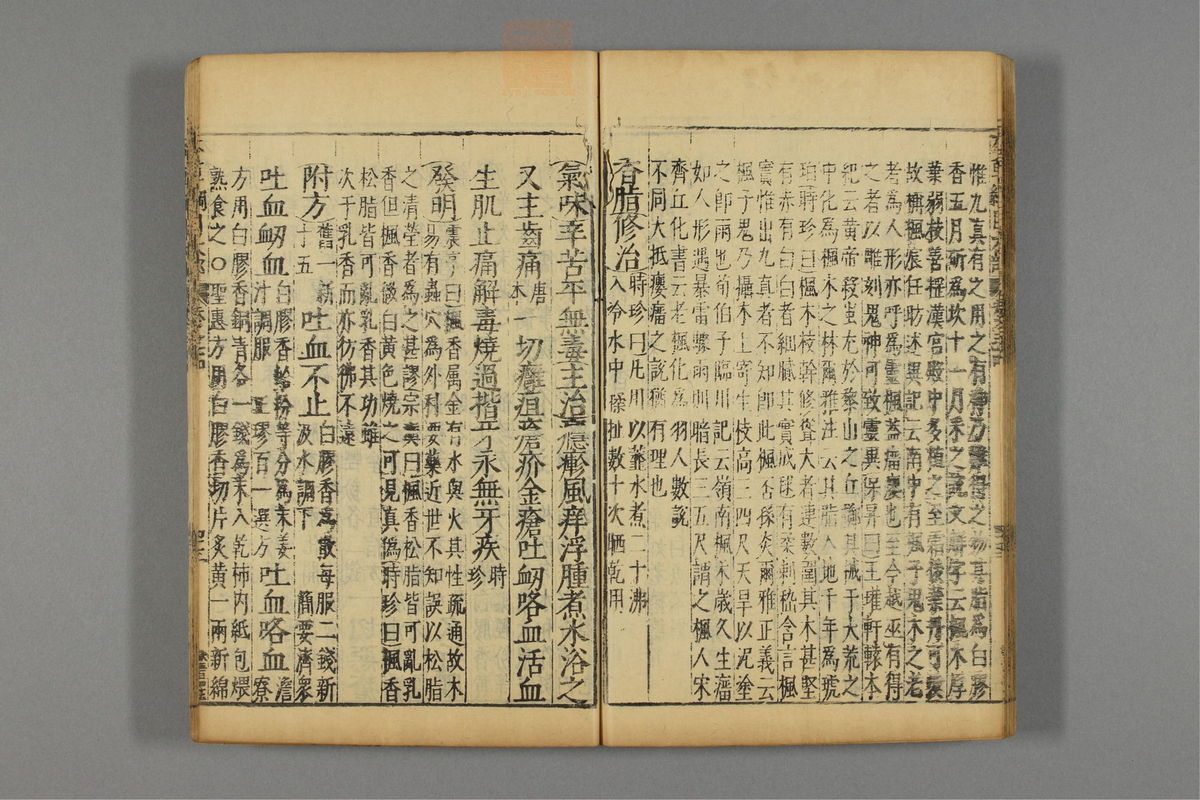 惟九真有之用之有神乃難得之物其脂為白膠
香五月斫為坎十一月采之說文解字云楓木厚
葉弱枝善搖漢宮殿中多植之至霜後葉丹可愛
故稱楓宸任昉述異記云南中有楓子鬼木之老
者為人形亦呼為靈楓蓋瘤癭也至今越巫有得
之者以雕刻鬼神可致靈異保昇曰王瓘軒轅本
紀云黃帝殺蚩尤於黎山之丘擲其械于大荒之
中化為楓木之林爾雅注云其脂入地千年為琥
珀時珍曰楓木枝幹修聳大者連數圍其木甚堅
有赤有白白者細膩其實成毬有柔刺嵇含言楓
實惟出九真者不知即此楓否孫炎爾雅正義云
楓子鬼乃攝木上寄生枝高三四尺天旱以泥塗
之即雨也荀伯子臨川記云嶺南楓木歲久生瘤
如人形遇暴雷驟雨則暗長三五尺謂之楓人宋
齊丘化書云老楓化為羽人數說
不同大抵癭瘤之說猶有理也
香脂修治時珍曰凡用以虀水煮二十沸
入冷水中揉扯數十次晒乾用
氣味辛苦平無毒主治癮疹風痒浮腫煮水浴之
又主齒痛唐本一切癰疽瘡疥金瘡吐衂咯血活血
生肌止痛解毒燒過揩牙永無牙疾時珍
發明震亨曰楓香属金有水與火其性疏通故木
易有蟲穴為外科要藥近世不知誤以松脂
之清瑩者為之甚謬宗奭曰楓香松脂皆可亂乳
香但楓香微白黃色燒之可見真偽時珍曰楓香
松脂皆可亂乳香其功雖
次于乳香而亦彷彿不遠
附方舊一新十五吐血不止白膠香為散每服二錢新
汲水調下簡要濟衆
吐血衂血白膠香蛤粉等分為末姜
汁調服王璆百一選方吐血咯血澹寮
方用白膠香銅青各一錢為末入乾柿内紙包煨
熟食之○聖惠方用白膠香切片炙黃一兩新綿